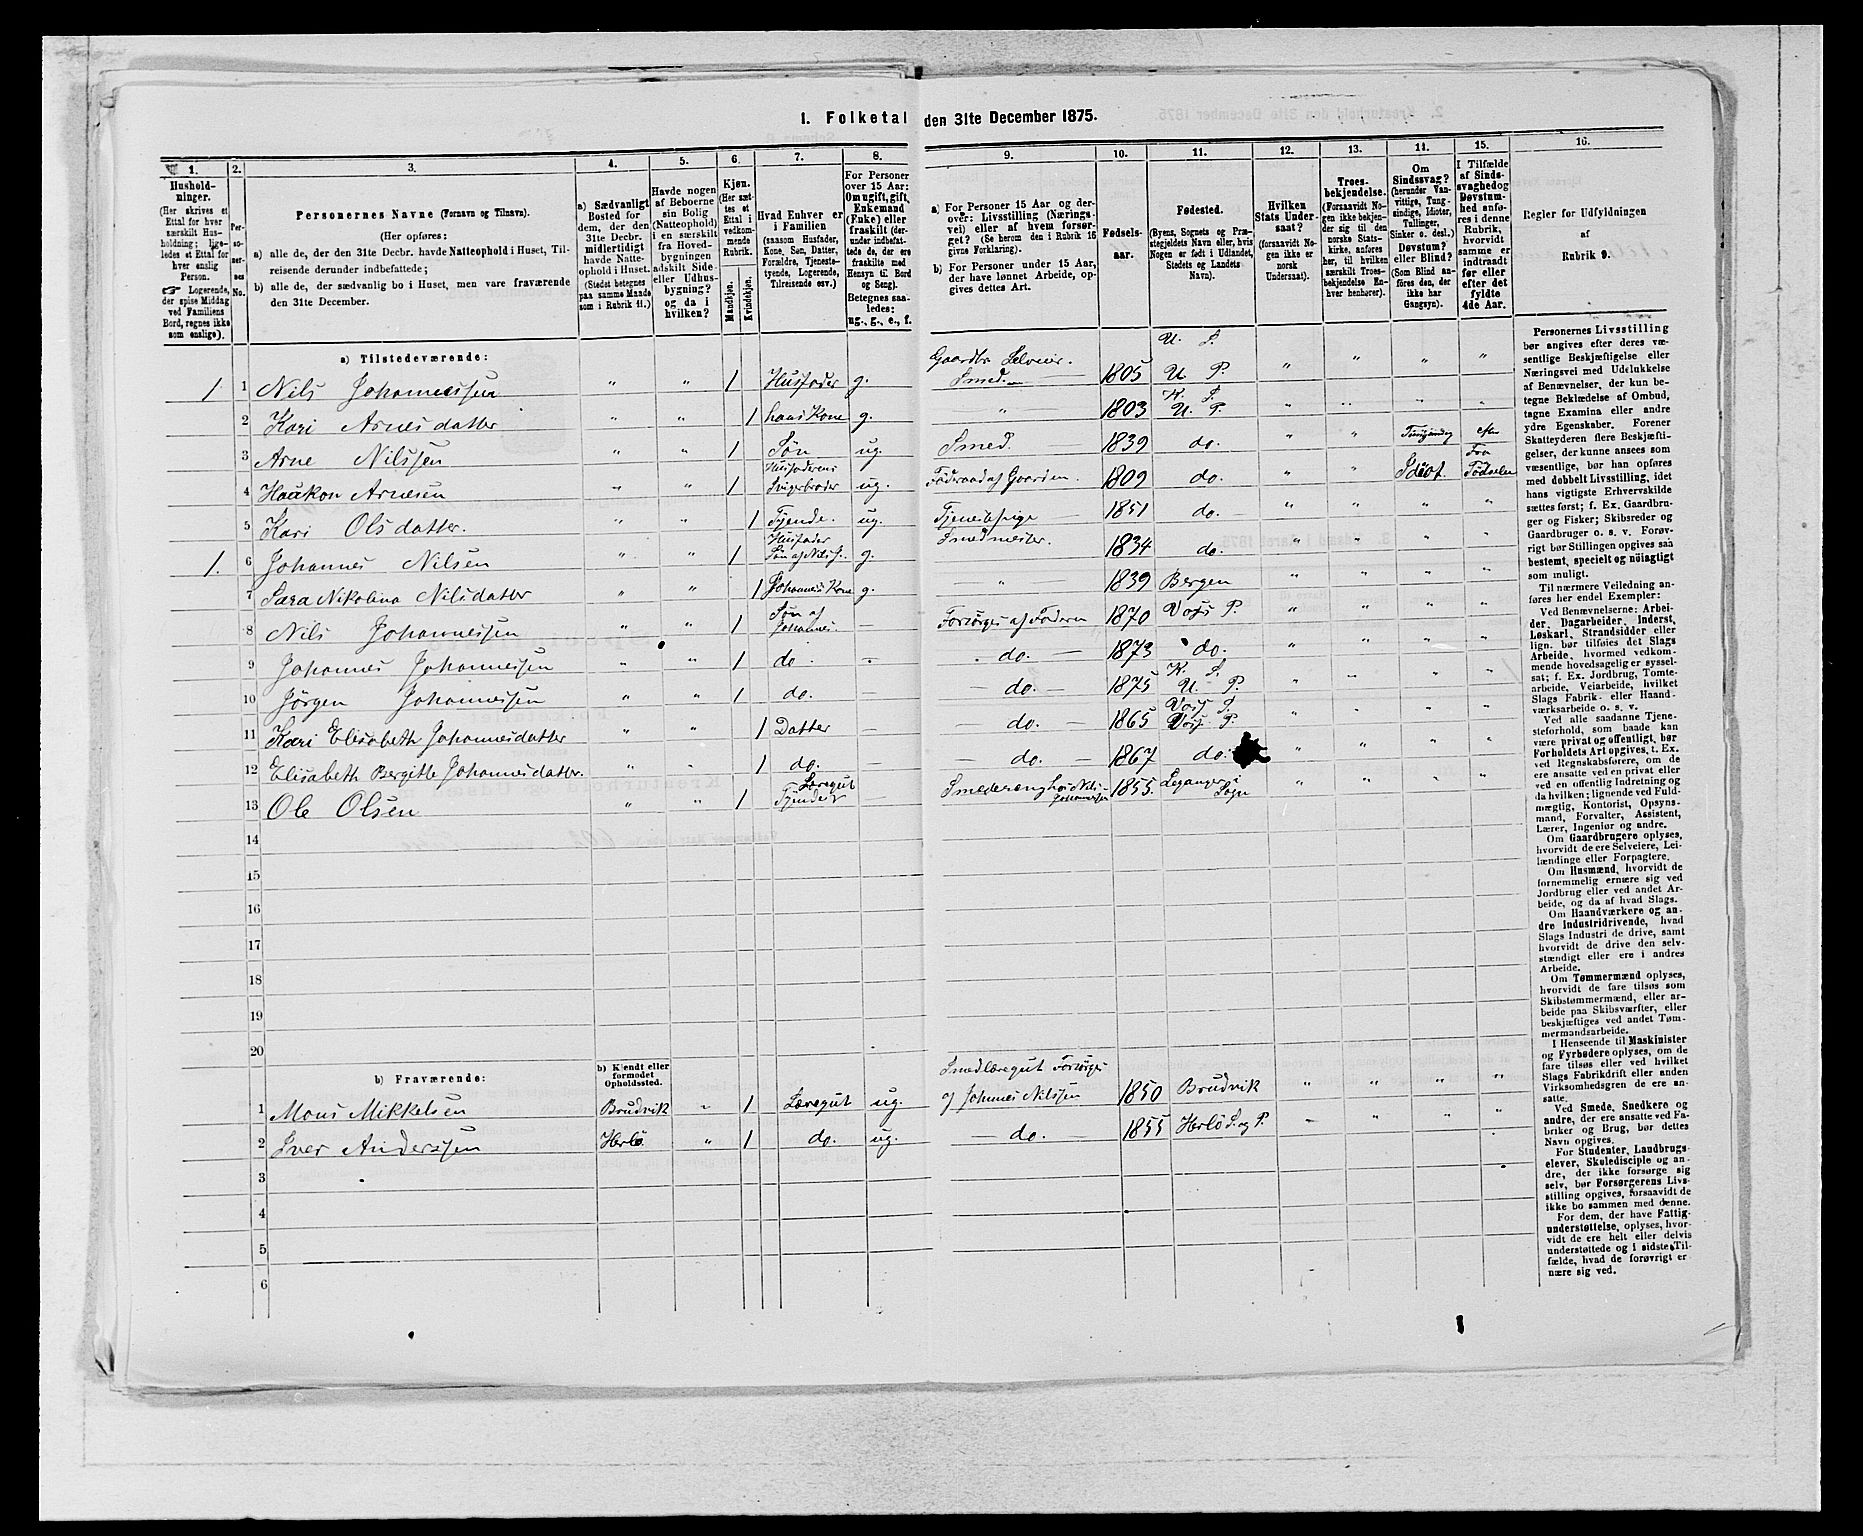 1. Folketal den 31te December 1875.
1. 2. 3. 4. 5. 6. 7. 8. 9. 10. 11. 12. 13. 14. 15. 16.
Hushold-
ninger.
(Her skrives et
Ettal for hver
særskilt Hus-
holdning; lige-
ledes et Ettal for
hver enslig
Person.
☛ Logerende,
der spise Middag
ved Familiens
Bord, regnes ikke
som enslige).
Per-
so-
ner-
nes
No.
Personernes Navne (Fornavn og Tilnavn).
(Her opføres:
a) alle de, der den 31te Decbr. havde Natteophold i Huset, Til-
reisende derunder indbefattede;
b) alle de, der sædvanlig bo i Huset, men vare fraværende
den 31te December.
a) Sædvanligt
Bosted for
dem, der den
31te Decbr.
midlertidigt
havde Natte-
ophold i Huset.
(Stedet betegnes
paa samme Maade
som i Rubrik 11.)
Havde nogen
af Beboerne
sin Bolig
(Natteophold)
i en særskilt
fra Hoved-
bygningen
adskilt Side-
eller Udhus-
bygning?
og da i
hvilken?
Kjøn.
(Her sæt-
tes et
Ettal i
vedkom-
mende
Rubrik.
Mandkjøn.
Kvindekjøn.
Hvad Enhver er
i Familien
(saasom Husfader,
Kone, Søn, Datter,
Forældre, Tjeneste-
tyende, Logerende,
Tilreisende osv.)
For Personer
over 15 Aar:
Om ugift, gift,
Enkemand
(Enke) eller
fraskilt (der-
under indbefat-
tede de, der ere
fraskilte med
Hensyn til Bord
og Seng).
Betegnes saa-
ledes:
ug., g., e., f.
a) For Personer 15 Aar og der-
over: Livsstilling (Nærings-
vei) eller af hvem forsør-
get? (Se herom den i Rubrik 16
givne Forklaring).
b) For Personer under 15 Aar,
der have lønnet Arbeide, op-
gives dettes Art.
Fødsels-
aar.
Fødested.
(Byens, Sognets og Præ-
stegjeldets Navn eller, hvis
Nogen er født i Udlandet,
Stedets og Landets
Navn).
Hvilken
Stats Under-
saat?
(forsaavidt No-
gen ikke er
norsk
Undersaat).
Troes-
bekjendelse.
(Forsaavidt No-
gen ikke bekjen-
der sig til den
norske Stats-
kirke, anføres
her, til hvilken
særskilt Troes-
bekjendelse En-
hver henhører).
Om
Sindssvag?
(herunder Van-
vittige, Tung-
sindige, Idioter,
Tullinger,
Sinker o. desl.)
Døvstum?
eller Blind?
(Som Blind an-
føres den, der
ikke har
Gangsyn).
I Tilfælde
af Sinds-
svaghed og
Døvstum-
hed anfø-
res i denne
Rubrik,
hvorvidt
samme er
indtraadt
før eller
efter det
fyldte
4de Aar.
Regler for Udfyldningen
af
Rubrik 9.
a) Tilstedeværende:
1. 1 Nils Johannessen " " 1 Husfader g. Gaardbr Selveier. Smed 1805 U. S. U P. " " " "
2 Kari Arnesdatter " " 1 hans Kone g. " 1803 K. S. U. P. " " " "
3 Arne Nilssen " " 1 Søn ug. Smed. 1839 do. " " efter
4 Haakon Arnesen " " 1 Husfaderens Svigerbroder ug. Føderaad af Gaarden. 1809 do. " " Idiot. Fra Fødselen
5 Kari Olsdatter. " " 1 Tjende. ug. Tjenestepige 1851 do. " " " "
1. 6 Johannes Nilsen " " 1 Husfader Søn af Nils J. g. Smedmester. 1834 do. " " " "
7 Sara Nikolina Nilsdatter " " 1 Johannes Kone g. " 1839 Bergen " " " "
8 Nils Johannessen " " 1 Søn af Johannes. — Forsørges af Faderen 1870 Voss P. " " " "
9 Johannes Johannessen " " 1 do. do. 1873 do. " " " "
10 Jørgen Johannessen " " 1 do. — do. — 1875 K. S. U. P. " " " "
11 Kari Elisabeth Johannesdatter " " 1 Datter — do. — 1865 Voss S. Voss P. " " " "
12 Elisabeth Bergitte Johannesdatter. " " 1 do. — do. — 1867 do. " " " "
13 Ole Olsen " " 1 Læregut Tjender — Smededreng hos Nils Johannessen 1855. Leganger i Sogn " " " "
14
15
16
17
18
19
20
b) Fraværende:
b) Kjendt eller
formodet
Opholdssted.
1 Mons Mikkelsen Brudvik " 1 Læregut ug. Smedlæregut Forsørges af Johannes Nilssen 1850 Brudvik " " " "
2 Iver Anderssen Herlö " 1 do. ug. — do. — 1855 Herlö S. og P. " " " "
3
4
5
6
Personernes Livsstilling
bør angives efter deres væ-
sentlige Beskjæftigelse eller
Næringsvei med Udelukkelse
af Benævnelser, der kun be-
tegne Beklædelse af Ombud,
tagne Examina eller andre
ydre Egenskaber. Forener
Skatteyderen flere Beskjæfti-
gelser, der kunne ansees som
væsentlige, bør han opføres
med dobbelt Livsstilling, idet
hans vigtigste Erhvervskilde
sættes først; f. Ex. Gaardbru-
ger og Fisker; Skibsreder og
Gaardbruger o. s. v. Forøv-
rigt bør Stillingen opgives saa
bestemt, specielt og nöiagtigt
som muligt.
Til nærmere Veiledning an-
føres her endel Exempler:
Ved Benævnelserne: Arbei-
der, Dagarbeider, Inderst,
Løskarl, Strandsidder eller
lign. bør tilføies det Slags
Arbeide, hvormed vedkom-
mende hovedsagelig er syssel-
sat; f. Ex. Jordbrug, Tomte-
arbeide, Veiarbeide, hvilket
Slags Fabrik- eller Haand-
værksarbeide o. s. v.
Ved alle saadanne Tjene-
steforhold, som baade kan
være privat og offentligt, bør
Forholdets Art opgives, t. Ex.
ved Regnskabsførere, om de
ere ansatte ved en privat eller
ved en offentlig Indretning og
da hvilken; lignende ved Fuld-
mægtig, Kontorist, Opsyns-
mand, Forvalter, Assistent,
Lærer, Ingeniør og andre.
Om Gaardbrugere oplyses,
hvorvidt de ere Selveiere, Lei-
lændinge eller Forpagtere.
Om Husmænd, hvorvidt de
fornemmelig ernære sig ved
Jordbrug eller ved andet Ar-
beide, og da af hvad Slags.
Om Haandværkere og an-
dre Industridrivende, hvad
Slags Industri de drive, samt
hvorvidt de drive den selv-
stændigt eller ere i andres
Arbeide.
Om Tømmermænd oplyses,
hvorvidt de fare tilsøs som
Skibstømmermænd, eller ar-
beide paa Skibsværfter, eller
beskjæftiges ved andet Tøm-
mermandsarbeide.
I Henseende til Maskinister
og Fyrbødere oplyses, om de
fare tilsøs eller ved hvilket
Slags Fabrikdrift eller anden
Virksomhedsgren de ere an-
satte.
Ved Smede, Snedkere og
andre, der ere ansatte ved Fa-
briker og Brug, bør dettes
Navn opgives.
For Studenter, Landbrugs-
elever, Skoledisciple og an-
dre, der ikke forsørge sig
selv, bør Forsørgerens Livs-
stilling opgives, forsaavidt de
ikke bo sammen med denne.
For dem, der have Fattig-
understøttelse, oplyses, hvor-
vidt de ere helt eller delvis
understøttede og i sidste Til-
fælde, hvad de forøvrigt er-
nære sig ved.